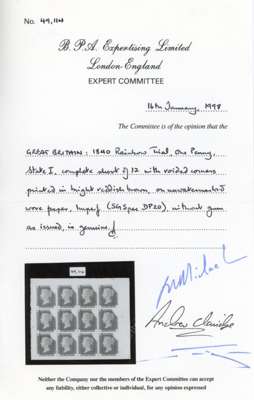 No. 49,114
B.P.A. Expertising Limited
London England
EXPERT COMMITTEE
16th January, 1998
The Committee is of the opinion that the
GREAT BRITAIN: 1840 Rainbow Trial, One Penny,
State I, complete sheet of 12 with voided corners
printed in bright reddish brown, on unwatermarked
wove paper, imperf (SG Spec DP20), without gum
as issued, is genuine.
Andrew Claridge
Neither the Company nor the members of the Expert Committee can accept
any liability, either collective or individual, for any opinion expressed